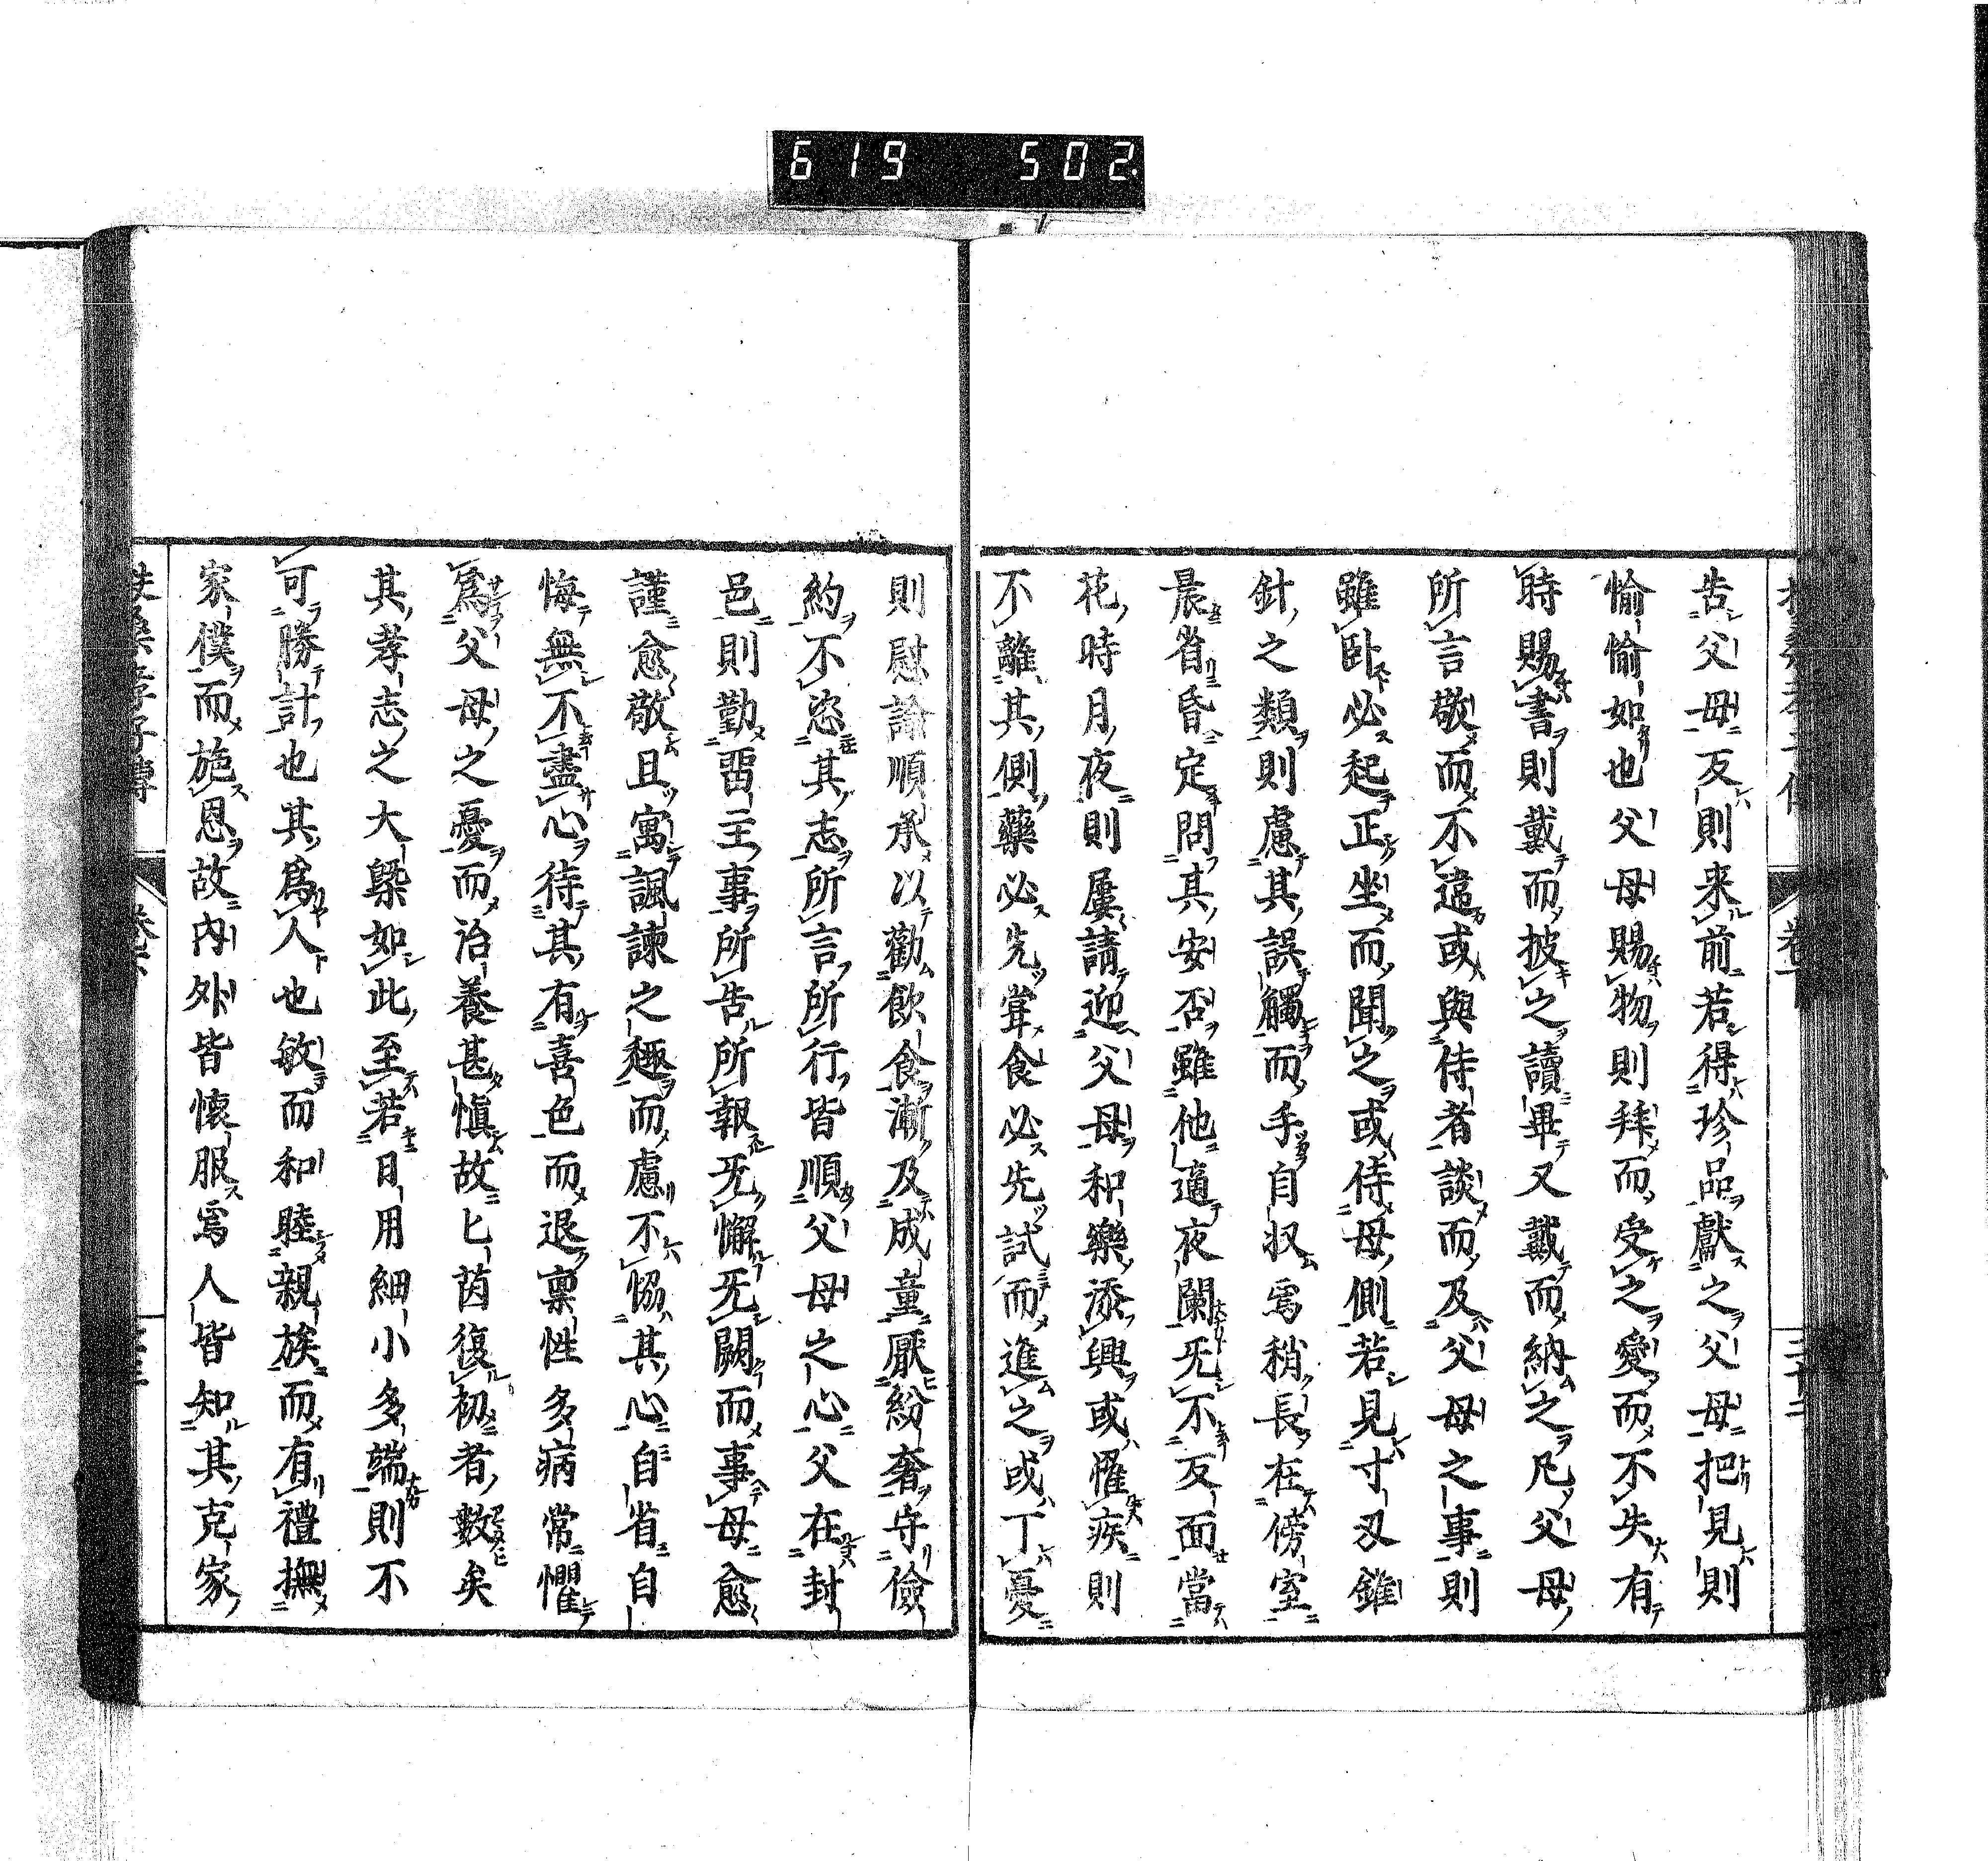 619 502
告父母反則来前若得珍品獻之父母把見則
愉愉如也父母賜物則拜而受之愛而不失有
時賜書則戴而披之讀畢又戴而納之凡父母
所言敬而不違或與侍者談而及父母之事則
雖臥必起正坐而聞之或侍母側若見寸刃錐
針之類則慮其誤觸而手自収焉稍長在傍室
晨省昏定問其安否雖他適夜闌旡不反面當
花時月夜則屢請迎父母和樂添興或罹疾則
不離其側藥必先甞食必先試而進之或丁憂
則慰諭順承以勸飲食漸及成童厭紛奢守儉
約不恣其志所言所行皆順父母之心父在封
邑則勤畱主事所告所報旡懈旡闕而事母愈
謹愈敬且寓諷諫之趣而慮不恊其心自省自
悔無不盡心待其有喜色而退稟性多病常懼
爲父母之憂而治養甚愼故匕茵復初者數矣
其孝志之大槩如此至若日用細小多端則不
可勝計也其爲人也敏而和睦親族而有禮撫
家僕而施恩故內外皆懷服焉人皆知其克家
扶桑孝子傳